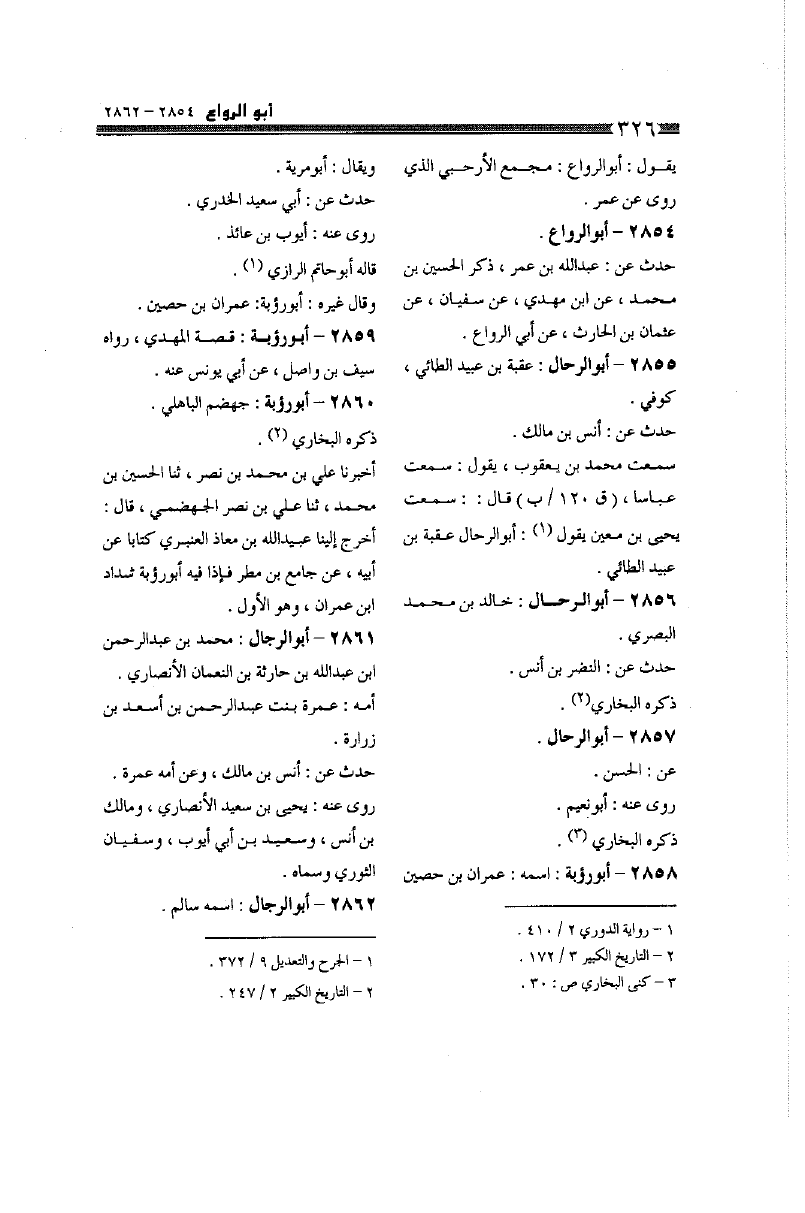 أبو الرواع ٢٨٥٤ – ٢٨٦٢
٣٢٦
يقول : أبوالرواع : مجمع الأرحبي الذي
روى عن عمر .
٢٨٥٤ – أبوالرواع .
حدث عن : عبدالله بن عمر ، ذكر الحسين بن
محمد ، عن ابن مهدي ، عن سفيان ، عن
عثمان بن الحارث ، عن أبي الرواع .
٢٨٥٥ – أبوالرحال : عقبة بن عبيد الطائي ،
كوفي .
حدث عن : أنس بن مالك .
سمعت محمد بن يعقوب ، يقول : سمعت
عباسا ، ( ق ١٢٠ / ب ) قال : : سمعت
يحيى بن معين يقول (١) : أبوالرحال عقبة بن
عبيد الطائي .
٢٨٥٦ – أبوالرحال : خالد بن محمد
البصري .
حدث عن : النضر بن أنس .
ذكره البخاري(٢) .
٢٨٥٧ – أبوالرحال .
عن : الحسن .
روى عنه : أبونعيم .
ذكره البخاري (٣) .
٢٨٥٨ – أبورؤبة : اسمه : عمران بن حصين
١ – رواية الدوري ٢ / ٤١٠ .
٢ – التاريخ الكبير ٣ / ١٧٢ .
٣ – كنى البخاري ص : ٣٠ .
ويقال : أبومرية .
حدث عن : أبي سعيد الخدري .
روى عنه : أيوب بن عائذ .
قاله أبوحاتم الرازي (١) .
وقال غيره : أبورؤبة: عمران بن حصين .
٢٨٥٩ – أبورؤبة : قصة المهدي ، رواه
سيف بن واصل ، عن أبي يونس عنه .
٢٨٦٠ – أبورؤبة : جهضم الباهلي .
ذكره البخاري (٢) .
أخبرنا علي بن محمد بن نصر ، ثنا الحسين بن
محمد ، ثنا علي بن نصر الجهضمي ، قال :
أخرج إلينا عبيدالله بن معاذ العنبري كتابا عن
أبيه ، عن جامع بن مطر فإذا فيه أبورؤبة شداد
ابن عمران ، وهو الأول .
٢٨٦١ – أبوالرجال : محمد بن عبدالرحمن
ابن عبدالله بن حارثة بن النعمان الأنصاري .
أمه : عمرة بنت عبدالرحمن بن أسعد بن
زرارة .
حدث عن : أنس بن مالك ، وعن أمه عمرة .
روى عنه : يحيى بن سعيد الأنصاري ، ومالك
بن أنس ، وسعيد بن أبي أيوب ، وسفيان
الثوري وسماه .
٢٨٦٢ – أبوالرجال : اسمه سالم .
١ – الجرح والتعديل ٩ / ٣٧٢ .
٢ – التاريخ الكبير ٢ / ٢٤٧ .